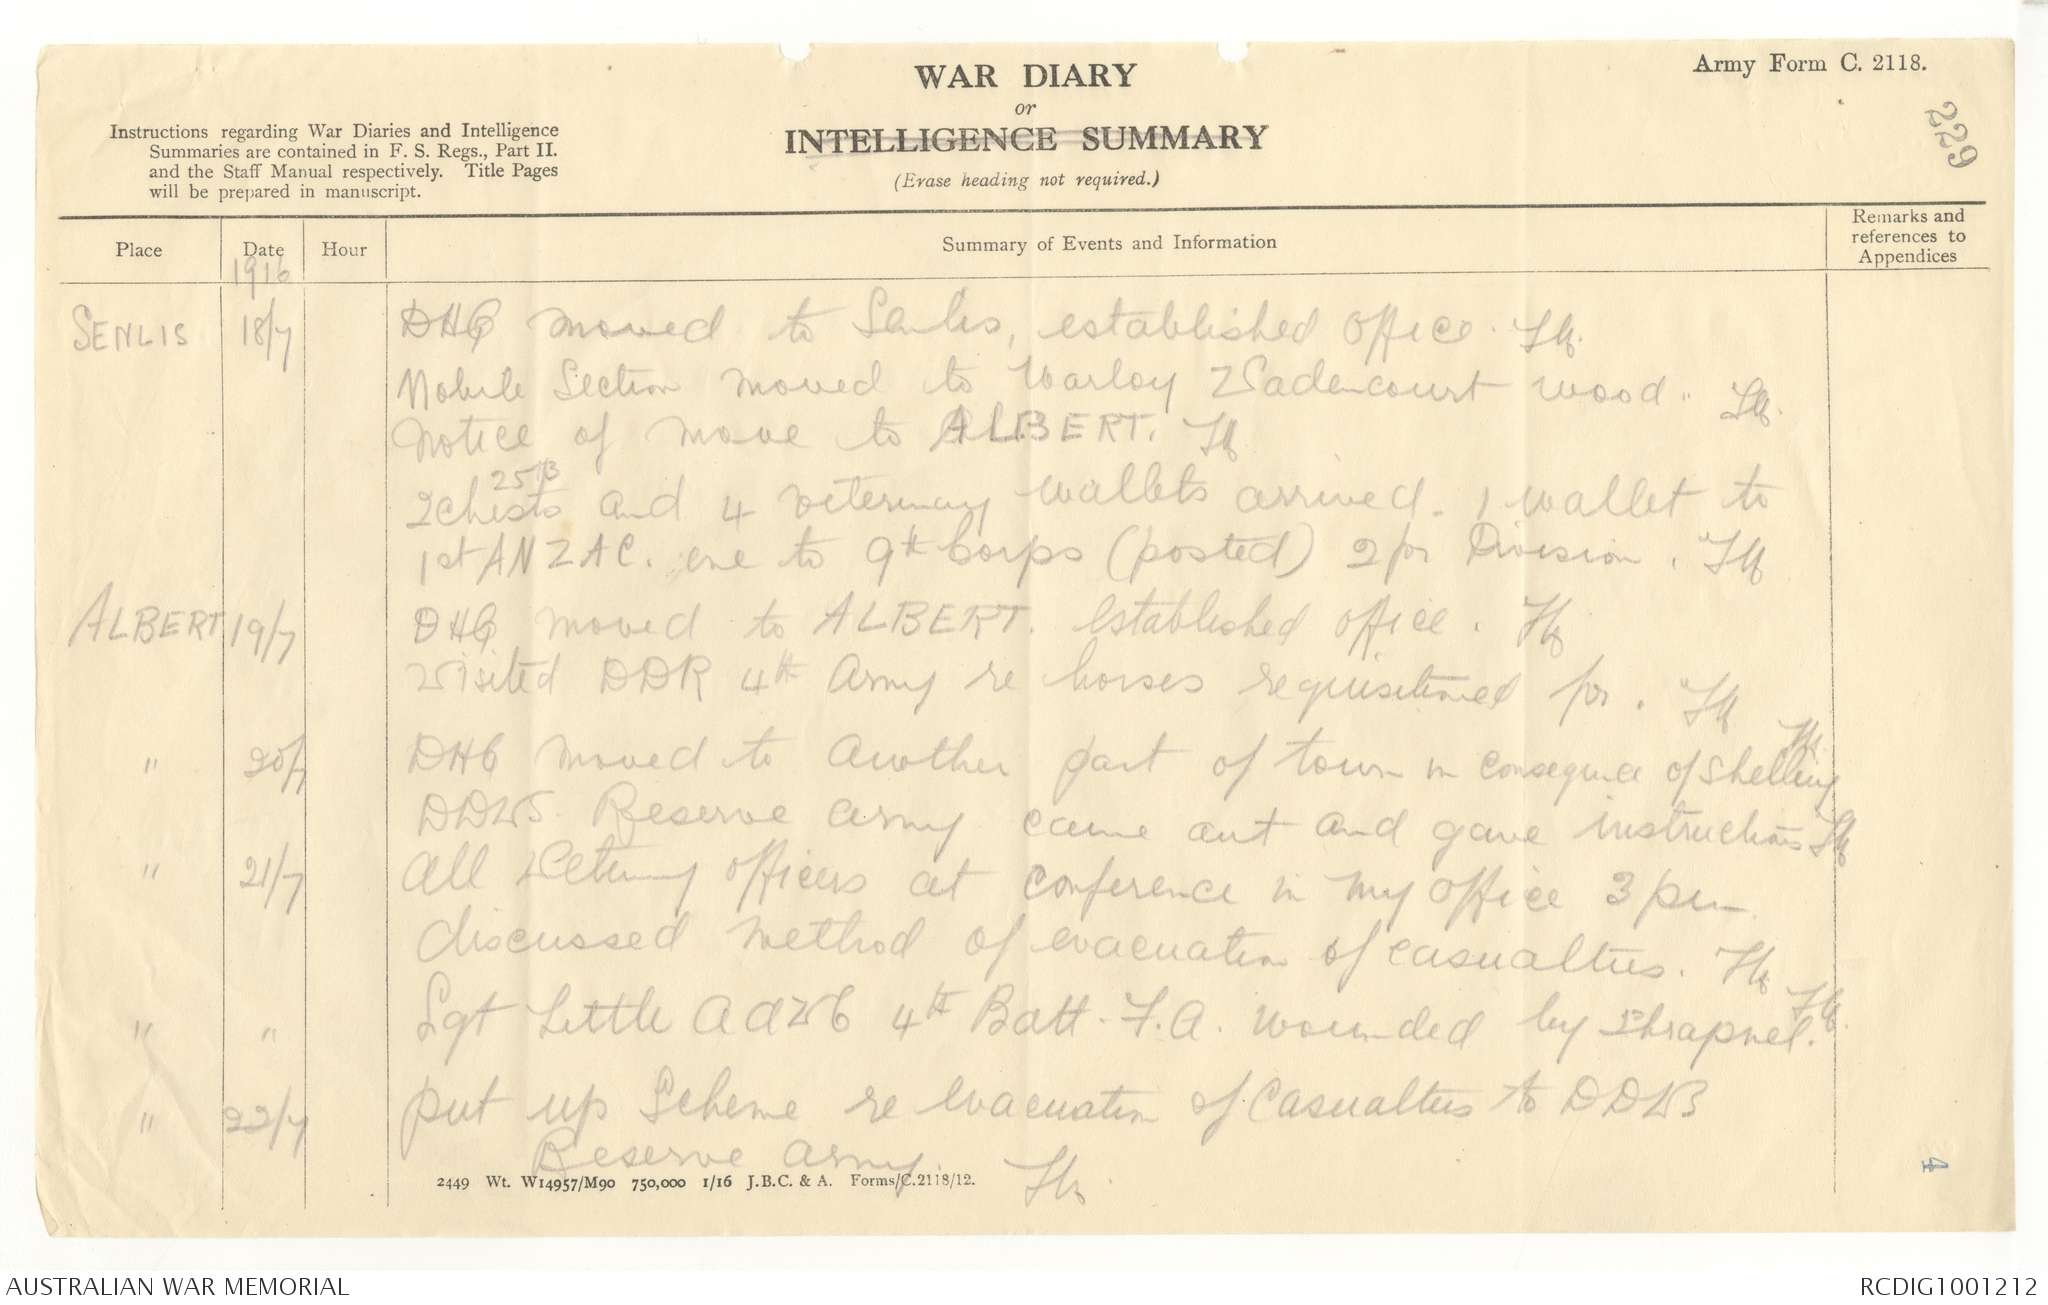 Army Form C. 2118.
WAR DIARY
or
INTELLIGENCE SUMMARY
(Erase heading not required.)
229
Instructions regarding War Diaries and Intelligence
Summaries are contained in F. S. Regs., Part II.
and the Staff Manual respectively. Title Pages
will be prepared in manuscript.
Place Date Hour Summary of Events and Information Remarks and references to Appendices
1916
SENLIS 18/7 DHQ moved to Senlis, established office.
Mobile Section moved to Warloy Vadencourt wood.
Notice of move to ALBERT.
25
2 chests and 4 veterinary wallets arrived. 1 wallet to
1st ANZAC. one to 9th Corps (posted) 2 for Division.
ALBERT 19/7 DHQ moved to ALBERT. established office.
visited DDR 4th Army re horses requisitioned for.
" 20/7 DHQ moved to another part of town in consequence of shelling
DDVS Reserve Army came out and gave instructions
" 21/7 All Veterinary officers at conference in my office 3 pm
discussed method of evacuation of casualties.
" " Sgt Little AAVC 4th Batt. F.A. wounded by shrapnel.
" 22/7 put up Scheme re evacuation of casualties to DDVS
Reserve Army.
2449 Wt. W14957/M90 750,000 1/16 J.B.C. & A. Forms/C.2118/12.
4
AUSTRALIAN WAR MEMORIAL
RCDIG1001212